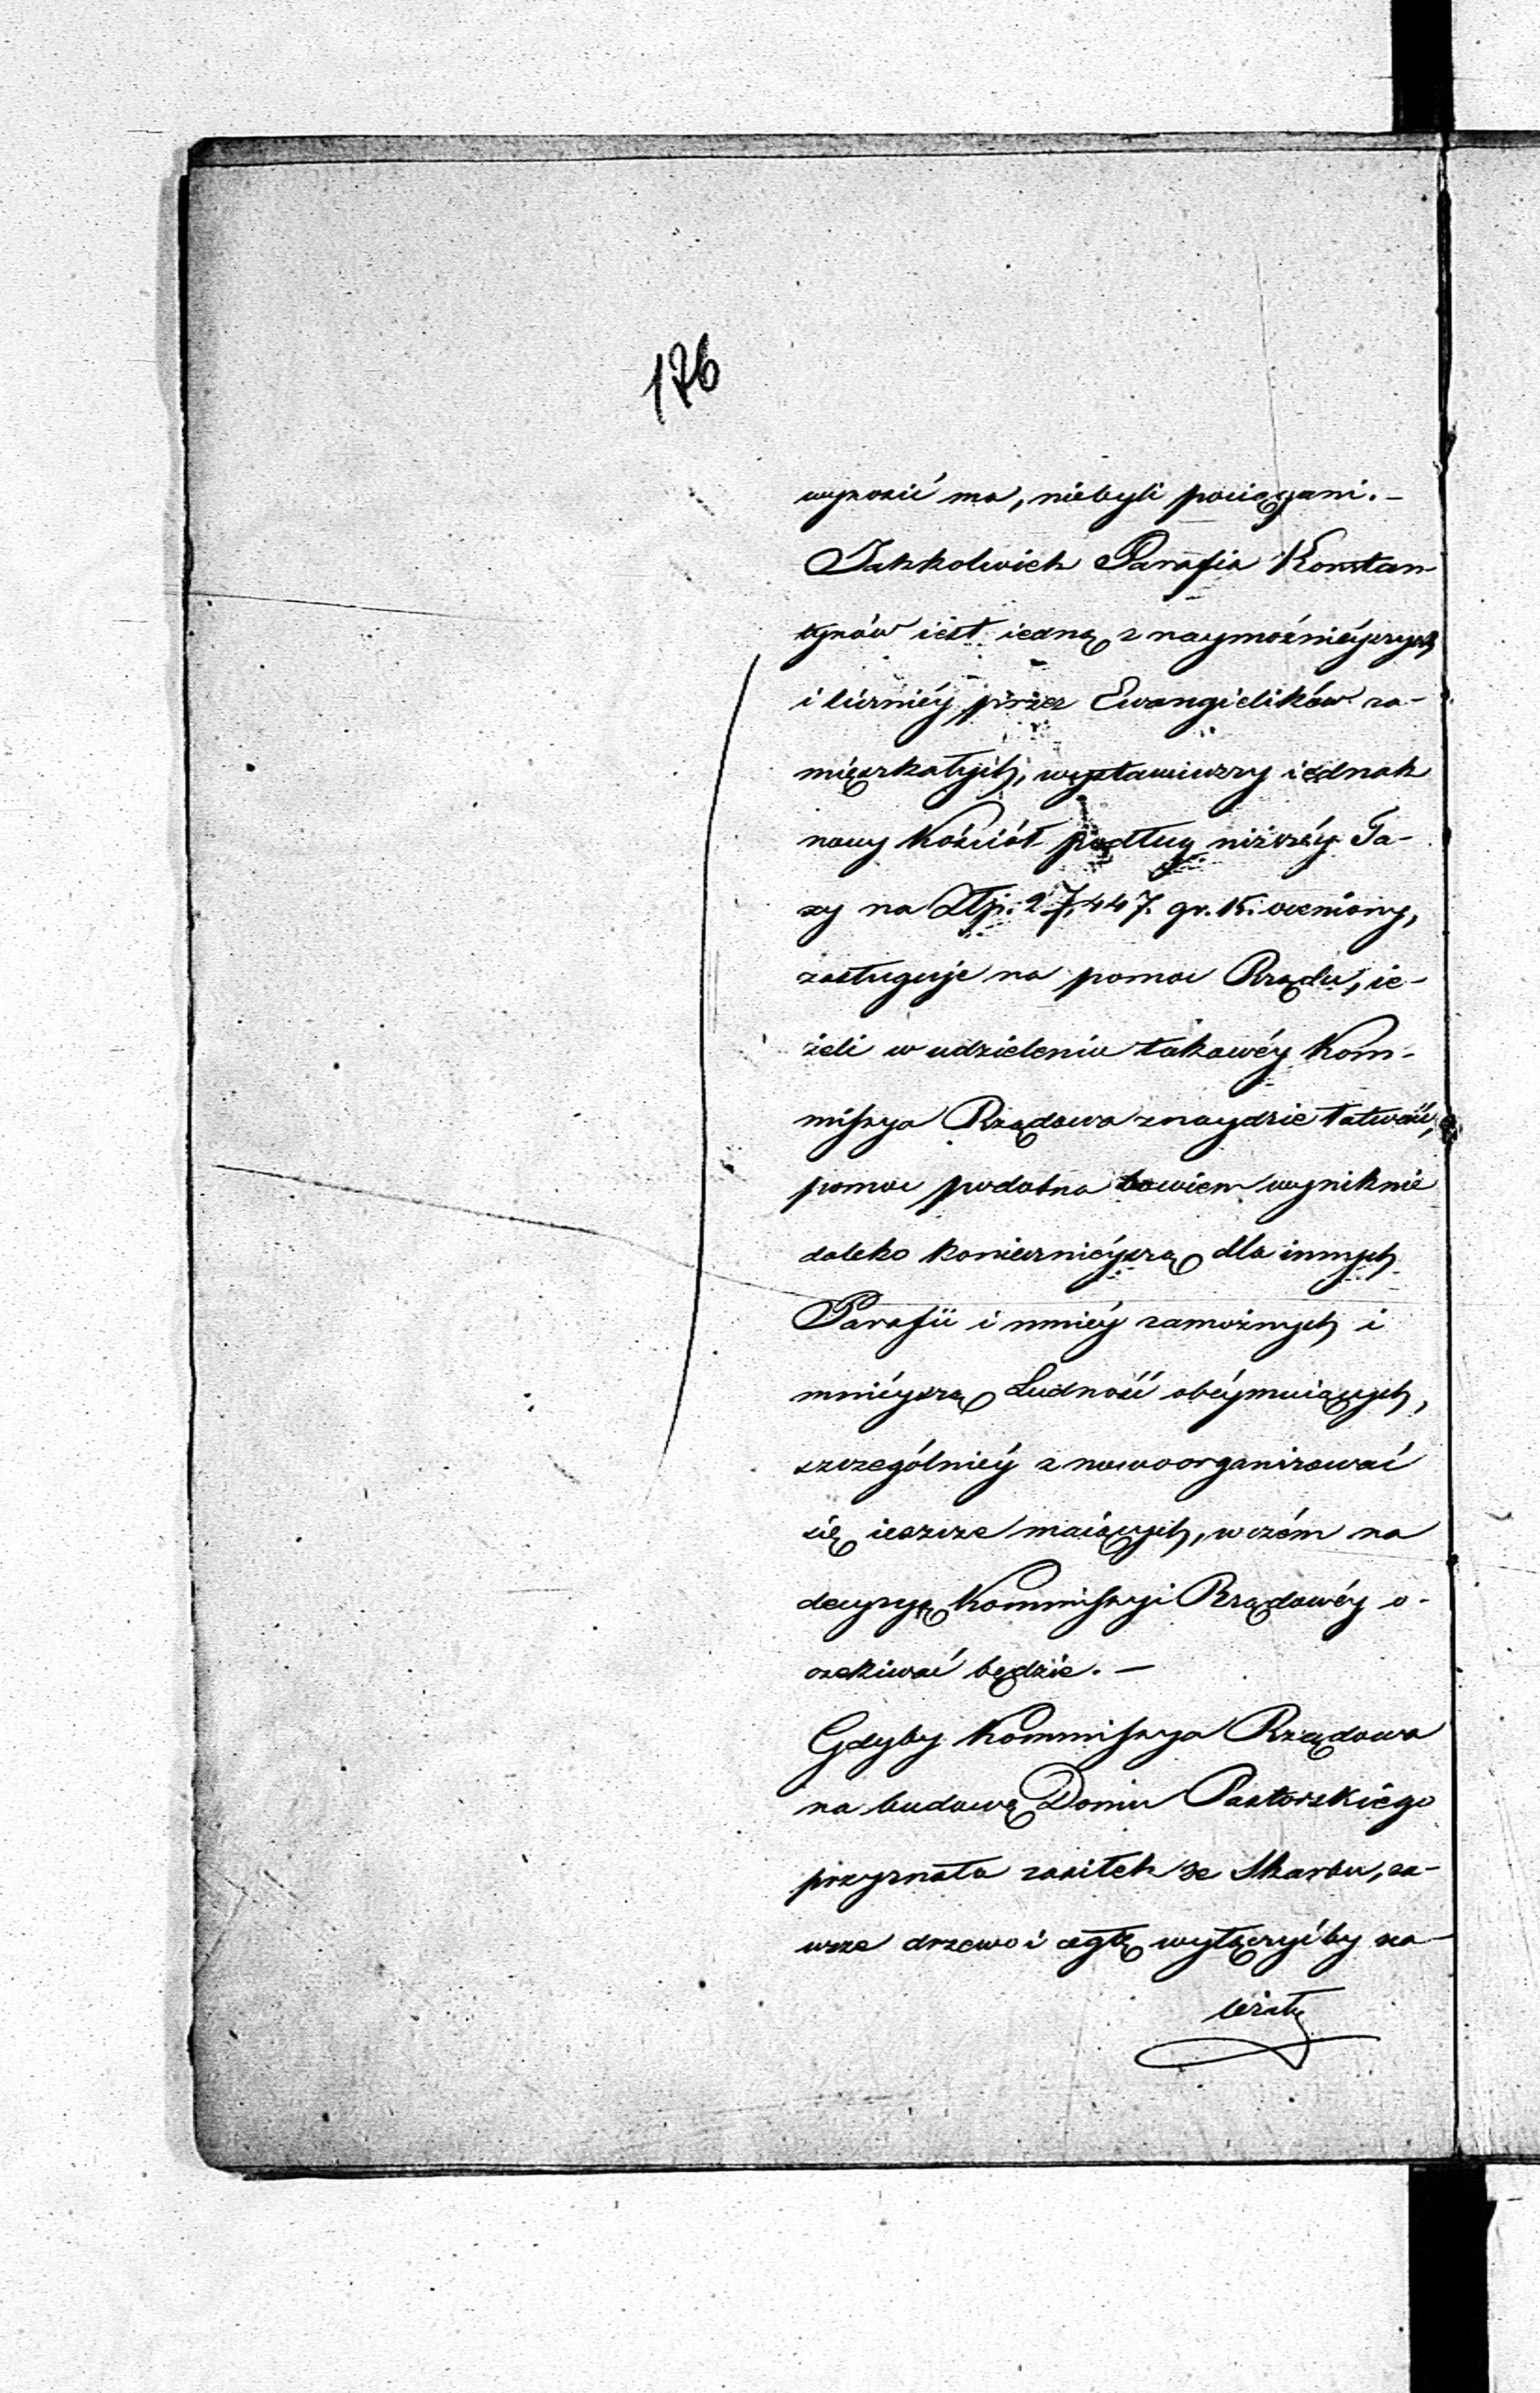 176
wynosić ma, niebyli pociągani. –
Jakkolwiek Parafia Konstan-
tynów iest iedną z naymożnieyszych
i liczniéy przez Ewangielików za-
mięszkałych, wystawiwszy iednak
nowy Kościół podług niższéy Ta-
xy na Złp. 27,447. gr. 15. oceniony,
zasługuje na pomoc Rządu, ie-
żeli w udzieleniu takowéy Kom-
missya Rządowa znaydzie łatwość,
pomoc podobna bowiem wyniknie
daleko koniecznieyszą dla innych
Parafii i mniéy zamożnych i
mnieyszą Ludność obeymuiących,
szczególniéy z nowoorganizować
się ieszcze maiących, w czém na
decyzyę Kommissyi Rządowéy o-
czekiwać będzie. –
Gdyby Kommissya Rządowa
na budowę Domu Pastorskiego
przyznała zasiłek ze Skarbu, za-
wsze drzewo i cegłę wyłączyćby na-
leżało